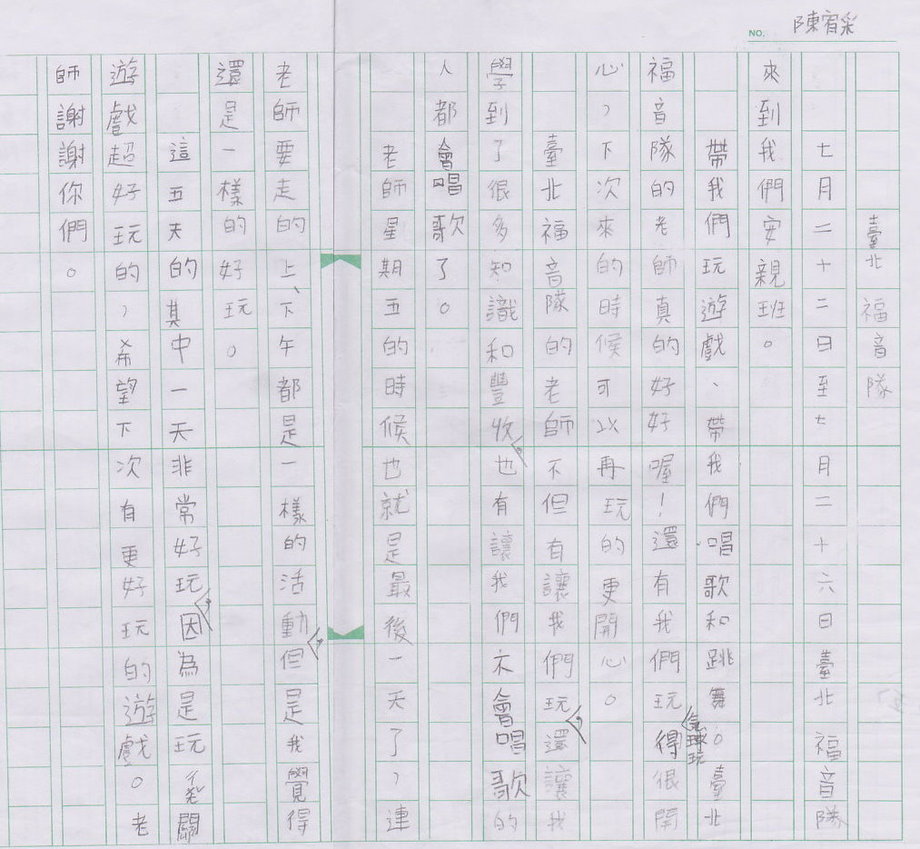 NO. 陳宥采
臺北福音隊
七月二十二日至七月二十六日臺北福音隊
來到我們安親班。
帶我們玩遊戲、帶我們唱歌和跳舞。臺北
福音隊的老師真的好好喔！還有我們玩氣球玩得很開
心，下次來的時候可以再玩的更開心。
臺北福音隊的老師不但有讓我們玩，還讓我
學到了很多知識和豐收，也有讓我們不會唱歌的
人都會唱歌了。
老師星期五的時候也就是最後一天了，連
老師要走的上、下午都是一樣的活動，但是我覺得
還是一樣的好玩。
這五天的其中一天非常好玩，因為是玩闖關
遊戲超好玩的，希望下次有更好玩的遊戲。老
師謝謝你們。